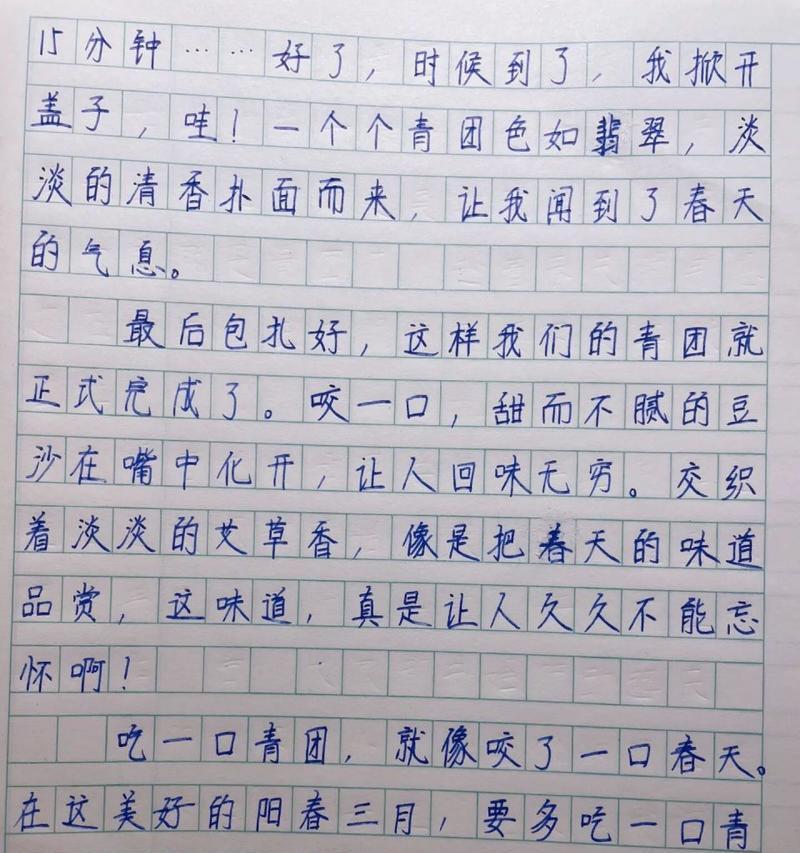 15分钟……好了，时候到了，我掀开
盖子，哇！一个个青团色如翡翠，淡
淡的清香扑面而来，让我闻到了春天
的气息。
最后包扎好，这样我们的青团就
正式完成了。咬一口，甜而不腻的豆
沙在嘴中化开，让人回味无穷。交织
着淡淡的艾草香，像是把春天的味道
品赏，这味道，真是让人久久不能忘
怀啊！
吃一口青团，就像咬了一口春天。
在这美好的阳春三月，要多吃一口青